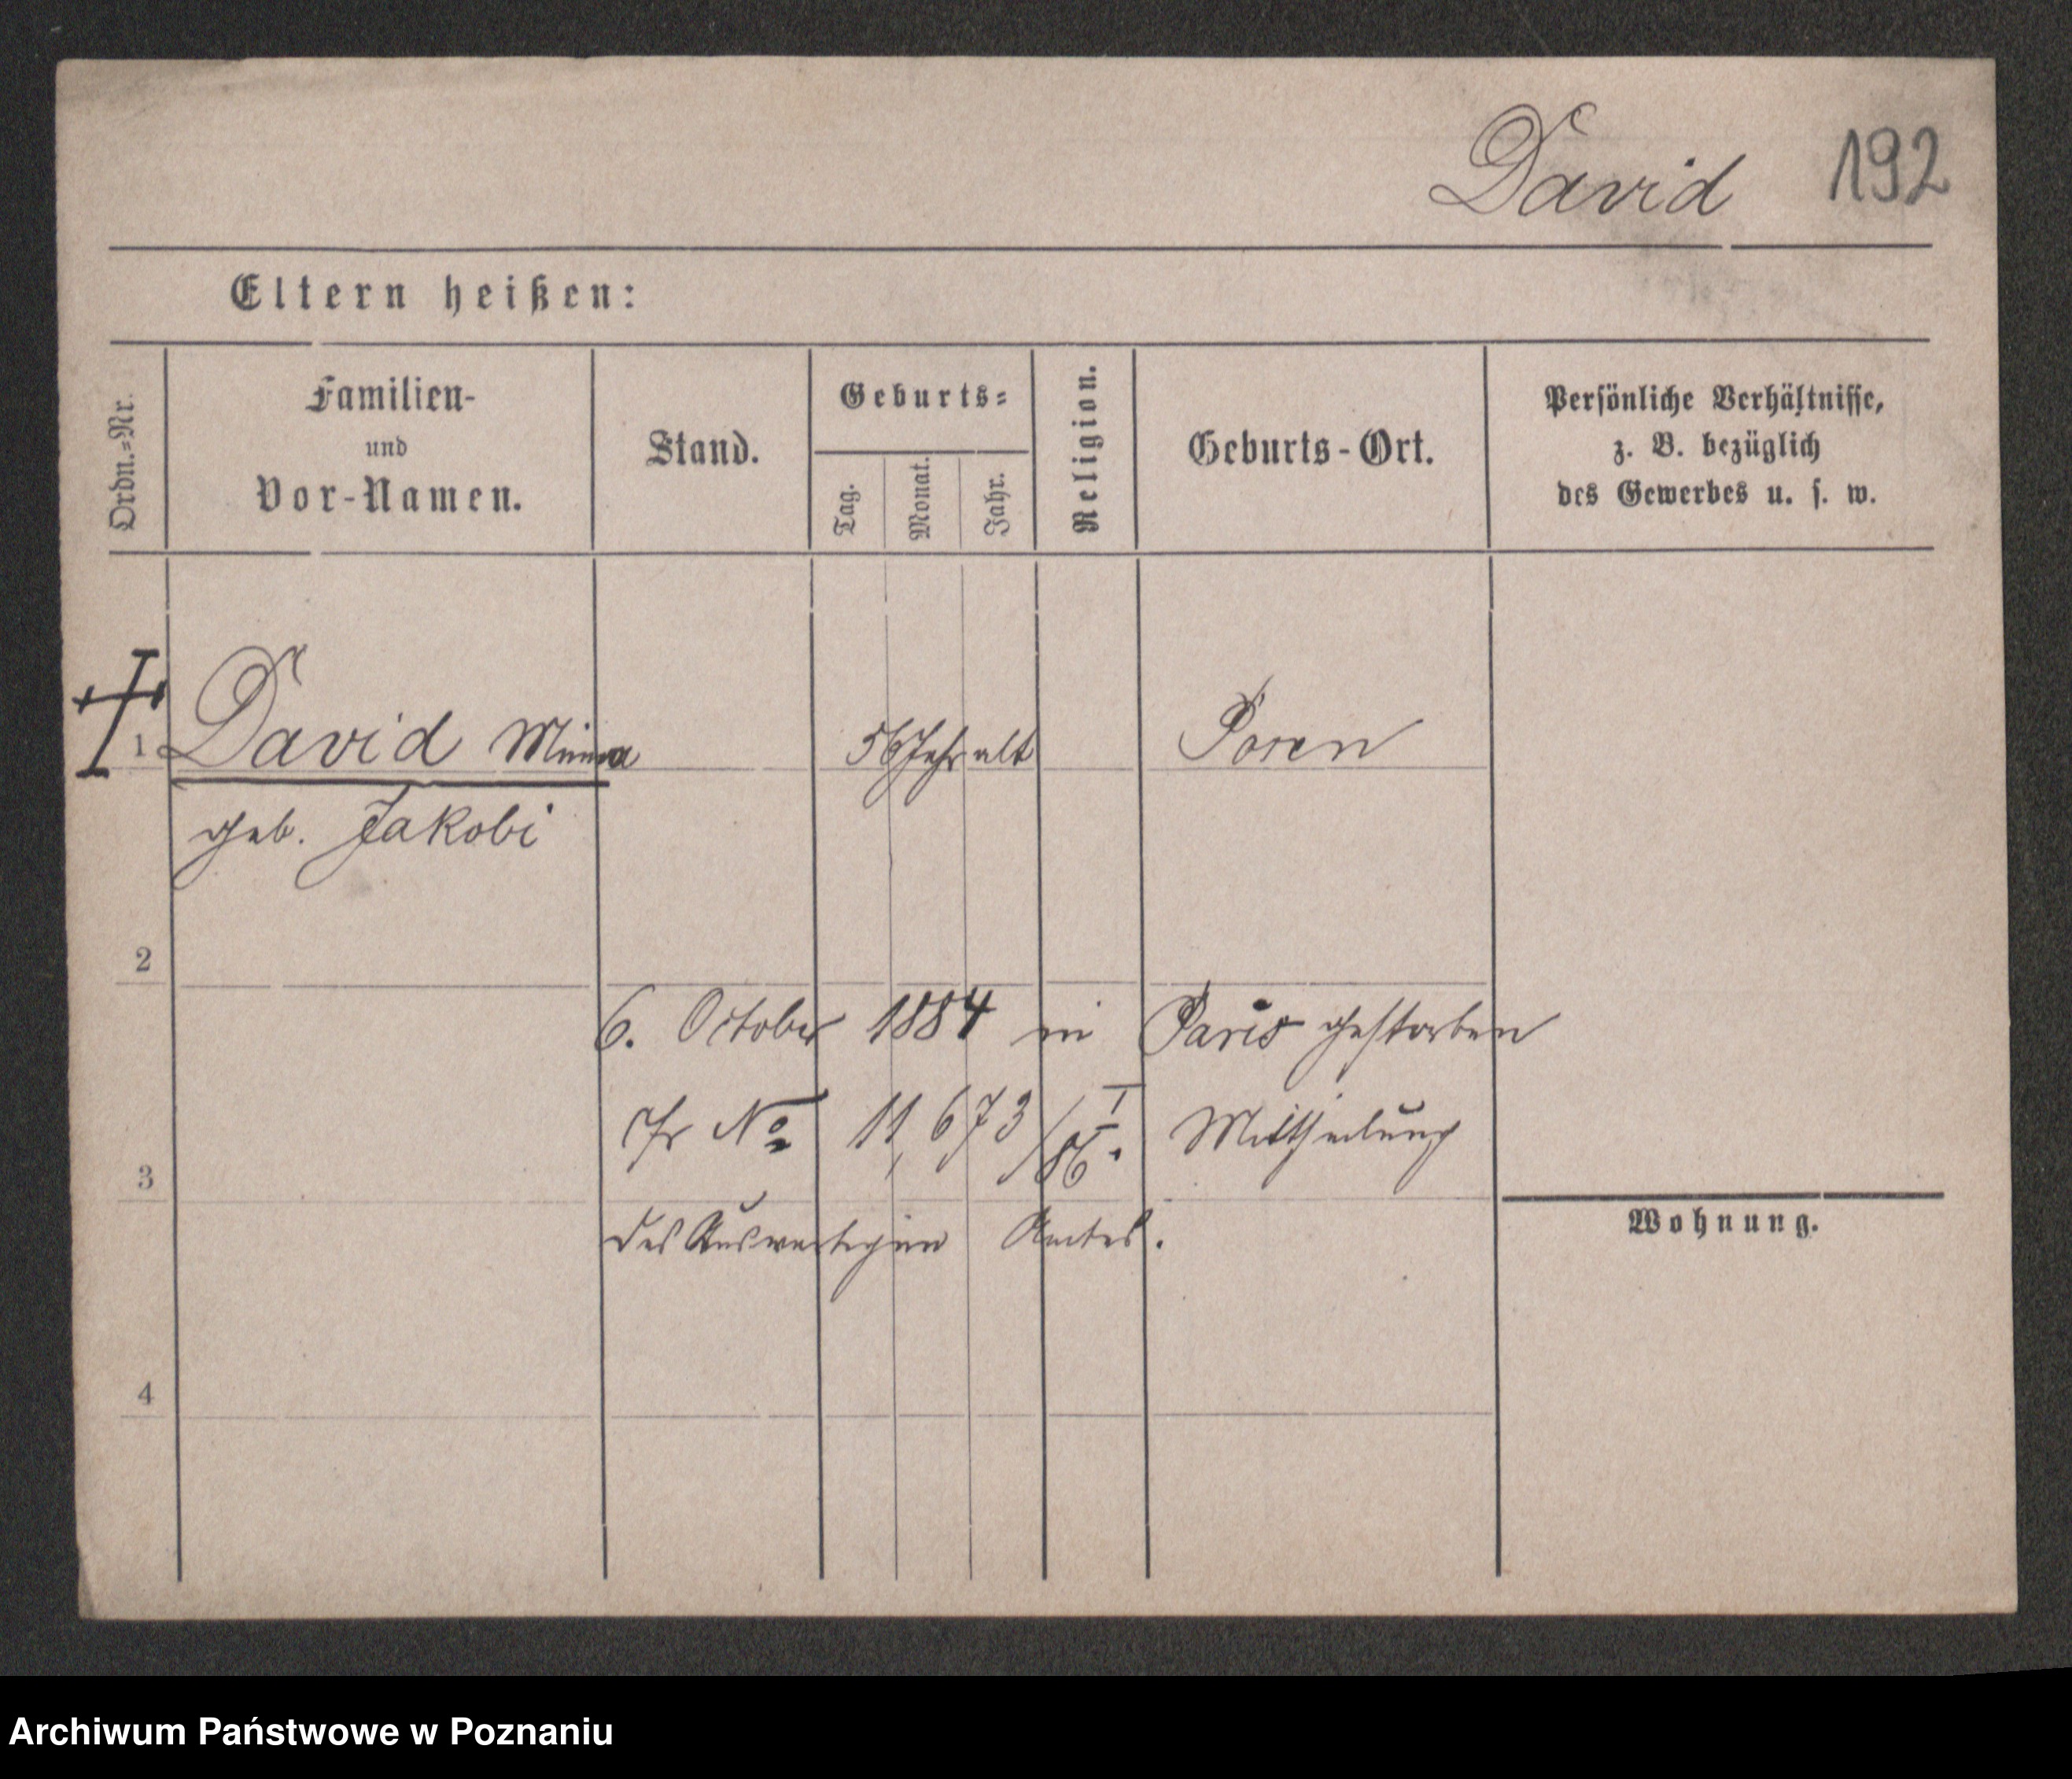 David 192
Eltern heißen:
Ordn.=Nr.
Familien-
und
Vor-Namen.
Stand.
Geburts=
Tag.
Monat.
Jahr.
Religion.
Geburts-Ort.
Persönliche Verhältnisse,
z. B. bezüglich
des Gewerbes u. s. w.
1 David Minna 56 Jahr alt Posen
geb. Jakobi
2
6. October 1884 in Paris gestorben
cfr No 11,673/86 I. Mittheilung
3
des Auswertigen Amtes.
Wohnung.
4
Archiwum Państwowe w Poznaniu